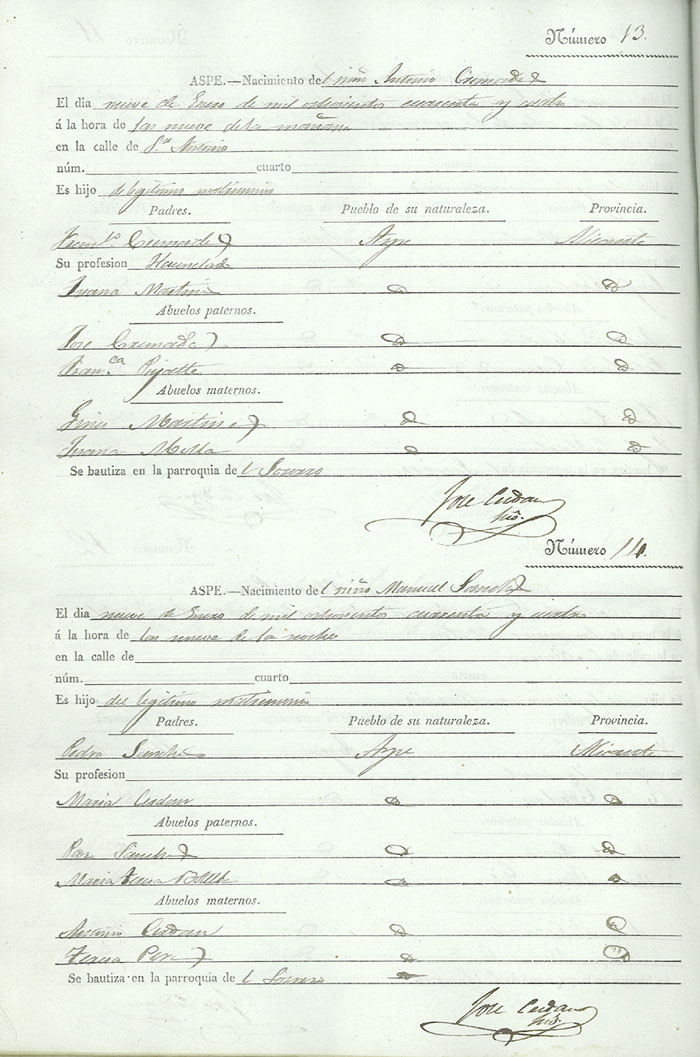 Número 13.
ASPE.—Nacimiento del niño Antonio Cremades
El dia nueve de Enero de mil ochocientos cuarenta y cuatro
á la hora de las nueve de la mañana
en la calle de Sn. Antonio
núm. cuarto
Es hijo de legitimo matrimonio
Padres. Pueblo de su naturaleza. Provincia.
Cremades Aspe Alicante
Su profesion Hacendado
Juana Martinez D D
Abuelos paternos.
Jose Cremades D D
Franca D D
Abuelos maternos.
Gines Martinez D D
Juana Molla D D
Se bautiza en la parroquia del Socorro
Jose Cerdan
Número 14.
ASPE.—Nacimiento del niño Manuel Sanchez
El dia nueve de Enero de mil ochocientos cuarenta y cuatro
á la hora de las nueve de la noche
en la calle de
núm. cuarto
Es hijo del legitimo matrimonio
Padres. Pueblo de su naturaleza. Provincia.
Pedro Sanchez Aspe Alicante
Su profesion
Maria Cerdan D D
Abuelos paternos.
Sanchez D D
Maria Teresa Botella D D
Abuelos maternos.
Antonio Cerdan D D
Teresa Perez D D
Se bautiza en la parroquia del Socorro
Jose Cerdan